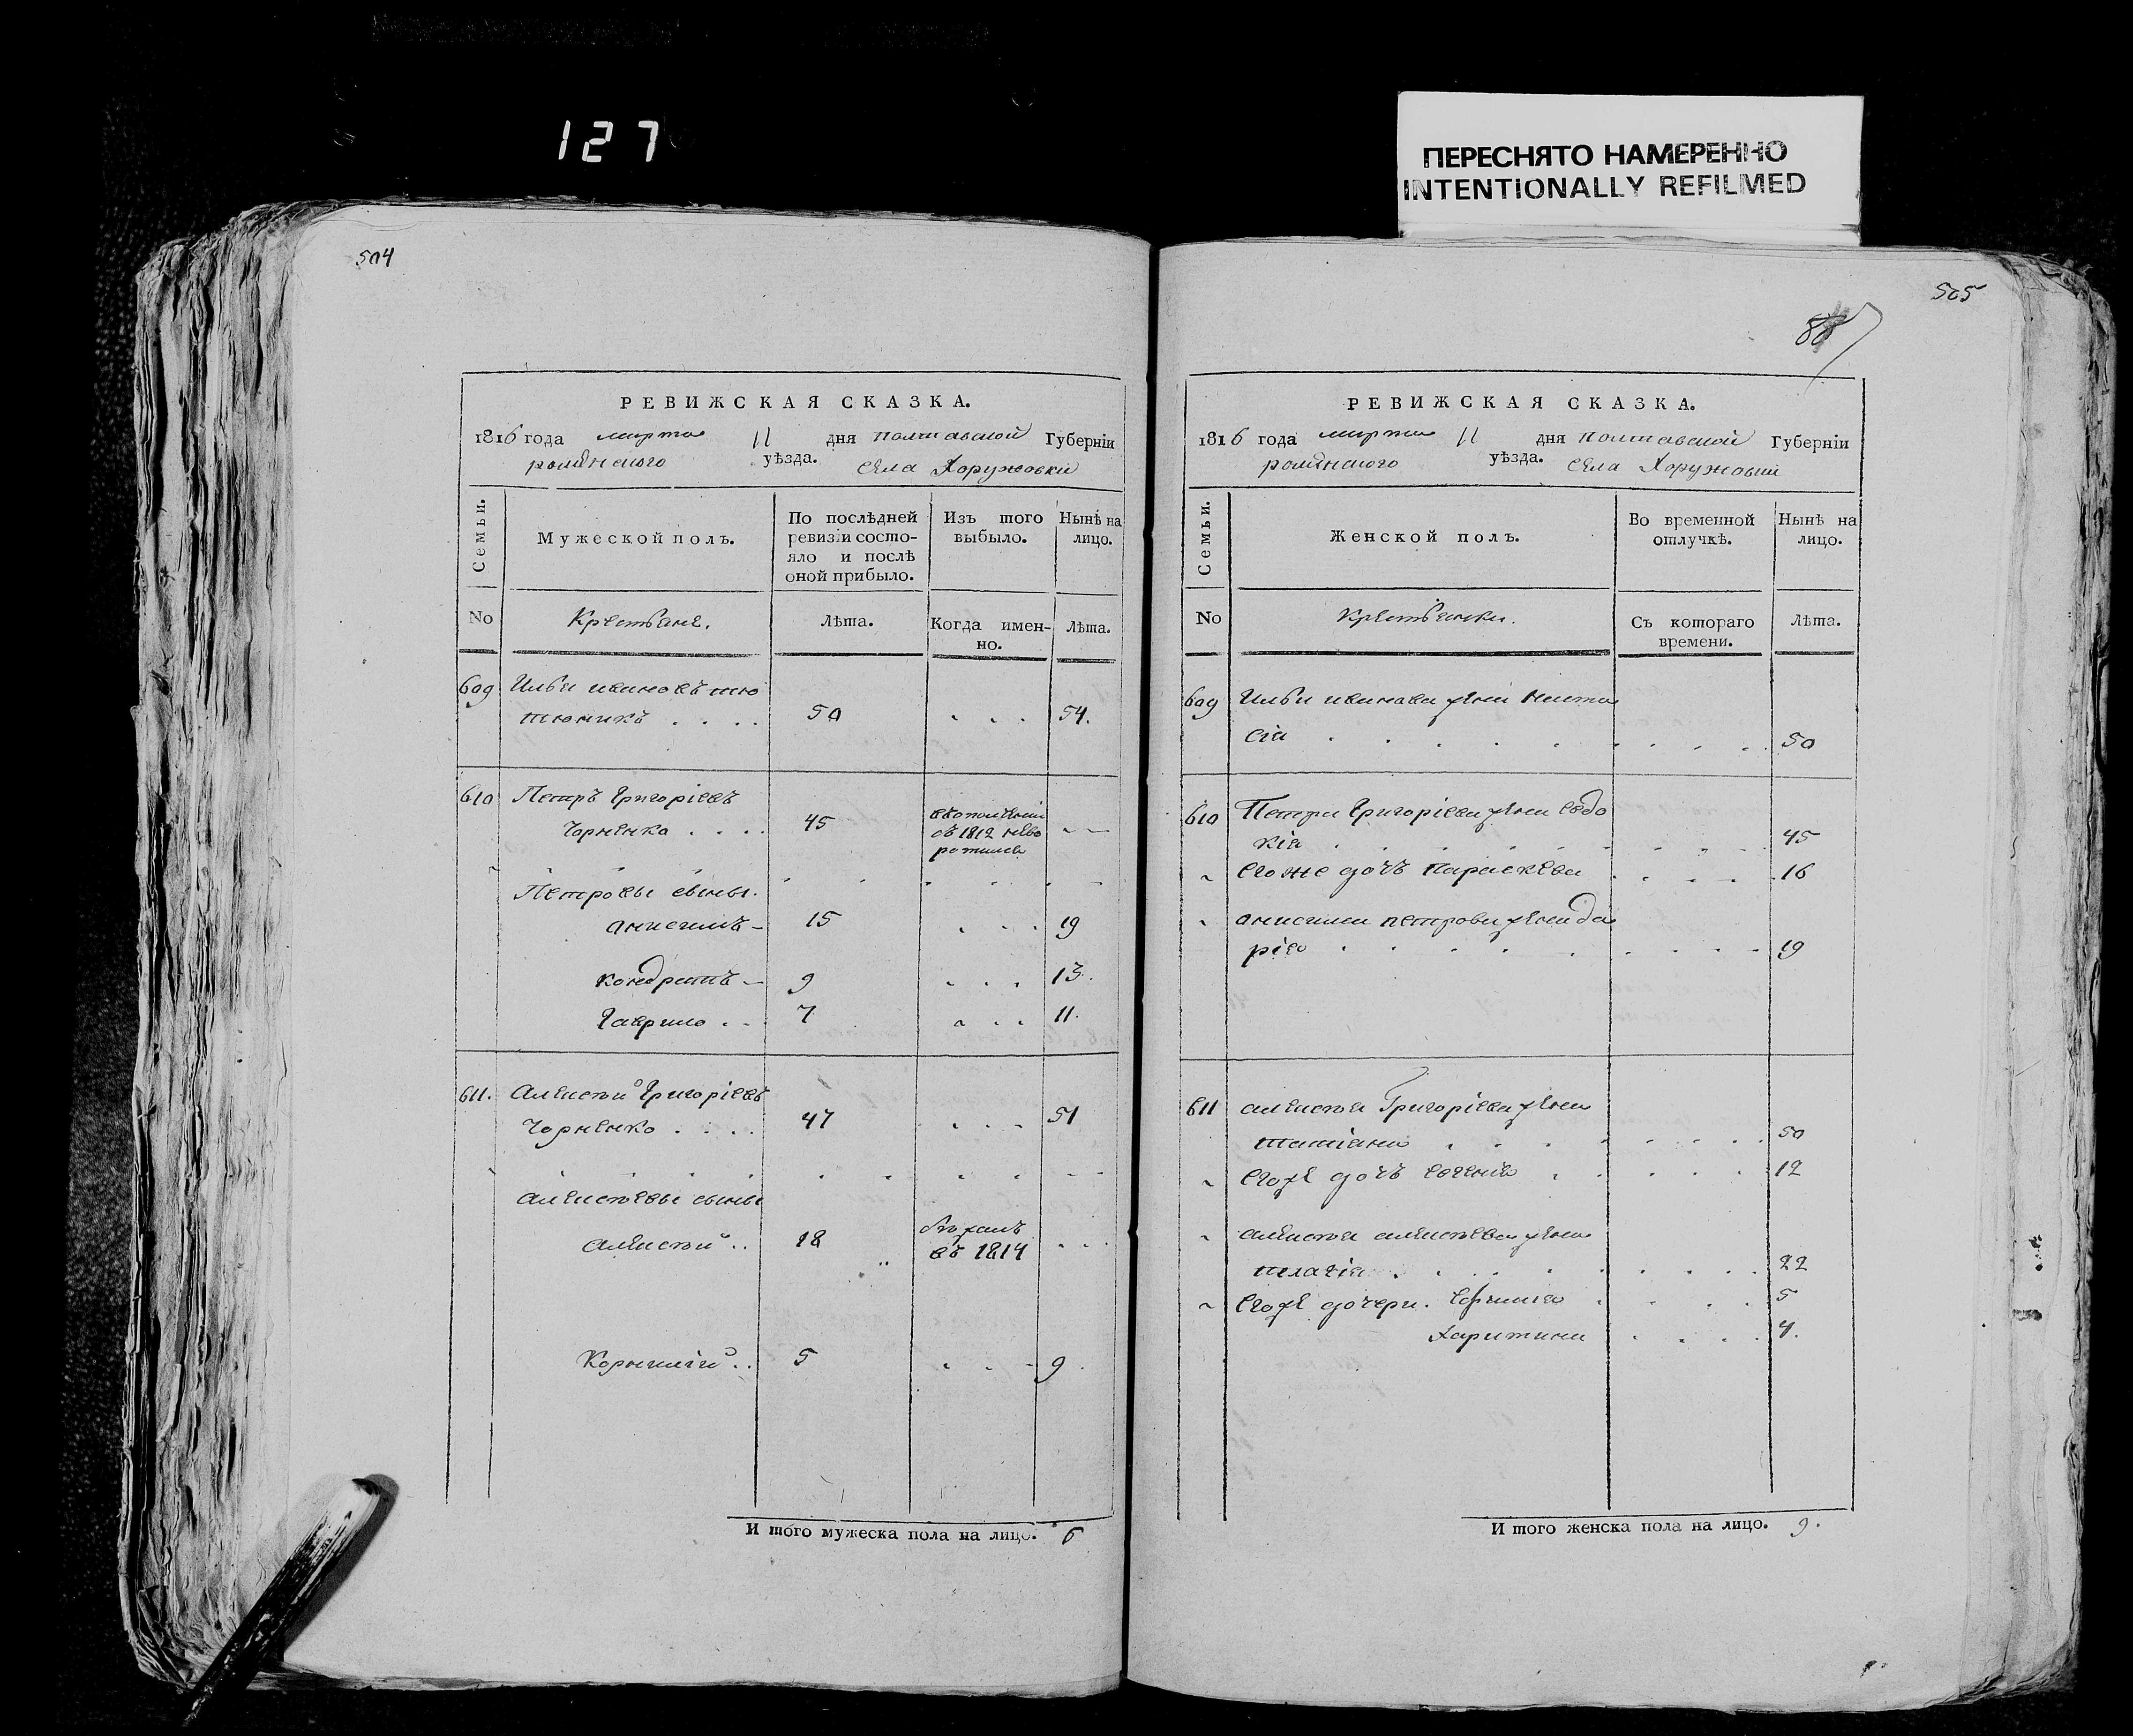 127
ПЕРЕСНЯТО НАМЕРЕННО
INTENTIONALLY REFILMED
504
РЕВИЖСКАЯ СКАЗКА.
1816 года марта 11 дня полтавской Губерніи
роменского уѣзда. села Хоружовки
Семьи.
Мужеской полъ.
По послѣдней
ревизіи состо-
яло и послѣ
оной прибыло.
Изъ того
выбыло.
Нынѣ на
лицо.
No
Крестьяне.
Лѣта.
Когда имен-
но.
Лѣта.
609 Илья ивановъ тю
тюникъ . . . . 50 . . . 54.
610 Петръ Григоріевъ
Чорненко . . . . 45
въ 1812
Петровы сыны.
анисимъ – 15 . . . 19
кондратъ – 9 . . . 13.
Гаврило . . 7 . . . 11.
611. Алексѣй Григоріевъ
Чорненко . . . . 47 . . . 51
Алексѣевы сыны
Алексѣй . . 18
въ 1814 . . .
Корнилій . . 5 . . - 9.
И того мужеска пола на лицо. 6
505
88
РЕВИЖСКАЯ СКАЗКА.
1816 года марта 11 дня полтавской Губерніи
роменского уѣзда. села Хоружовки
Семьи.
Женской полъ.
Во временной
отлучкѣ.
Нынѣ на
лицо.
No
Крестьянки.
Съ котораго
времени.
Лѣта.
609 Ильи иванова жена Наста
сія . . . . . . . . . 50
610 Петра Григоріева жена евдо
кія . . . . . . . . . 45
его же дочь Параскева . . . . 16
анисима петрова жена да
рія . . . . . . . . . 19
611 алексѣя Григоріева жена
татіана . . . . . . . 50
его же дочь евгенія . . . . 12
алексѣя алексѣева жена
пелагія . . . . . . . 22
его же дочери. Ефимія . . . . 5
Харитина . . . . 4.
И того женска пола на лицо. 9.